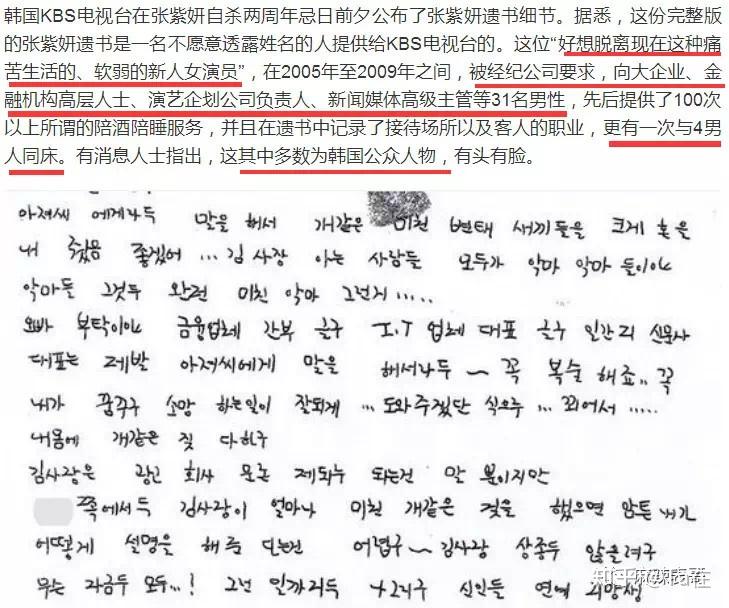 韩国KBS电视台在张紫妍自杀两周年忌日前夕公布了张紫妍遗书细节。据悉，这份完整版
的张紫妍遗书是一名不愿意透露姓名的人提供给KBS电视台的。这位“好想脱离现在这种痛
苦生活的、软弱的新人女演员”，在2005年至2009年之间，被经纪公司要求，向大企业、金
融机构高层人士、演艺企划公司负责人、新闻媒体高级主管等31名男性，先后提供了100次
以上所谓的陪酒陪睡服务，并且在遗书中记录了接待场所以及客人的职业，更有一次与4男
人同床。有消息人士指出，这其中多数为韩国公众人物，有头有脸。
아저씨 에게나두 말을 해서 개같은 미친 변태 새끼들을 크게 혼을
내 줬음 좋겠어 ... 김 사장 아는 사람들 모두가 악마 악마 들이야
악마들 그것두 완전 미친 악마 그런게 .....
오빠 부탁이야 금융업체 간부 글구 I.T 업체 대표 글구 일간지 신문사
대표는 제발 아저씨에게 말을 해서라두 ~ 꼭 복술 해죠.. 꼭
내가 꿈꾸구 소망 하는일이 잘되게 ... 도와주겠단 식으루 ... 꾀어서 .....
내몸에 개같은 짓 다하구
김사장은 광고 회사 모든 제의두 되는건 말 뿐이지만
쪽에서두 김사장이 얼마나 미친 개같은 짓을 했으면 암튼 내가
어떻게 설명을 해야 단는건 어렵구 ~ 김사장 상종두 않을려구
무슨 자금두 모두...! 그런 인간이두 신인들 연예
知乎